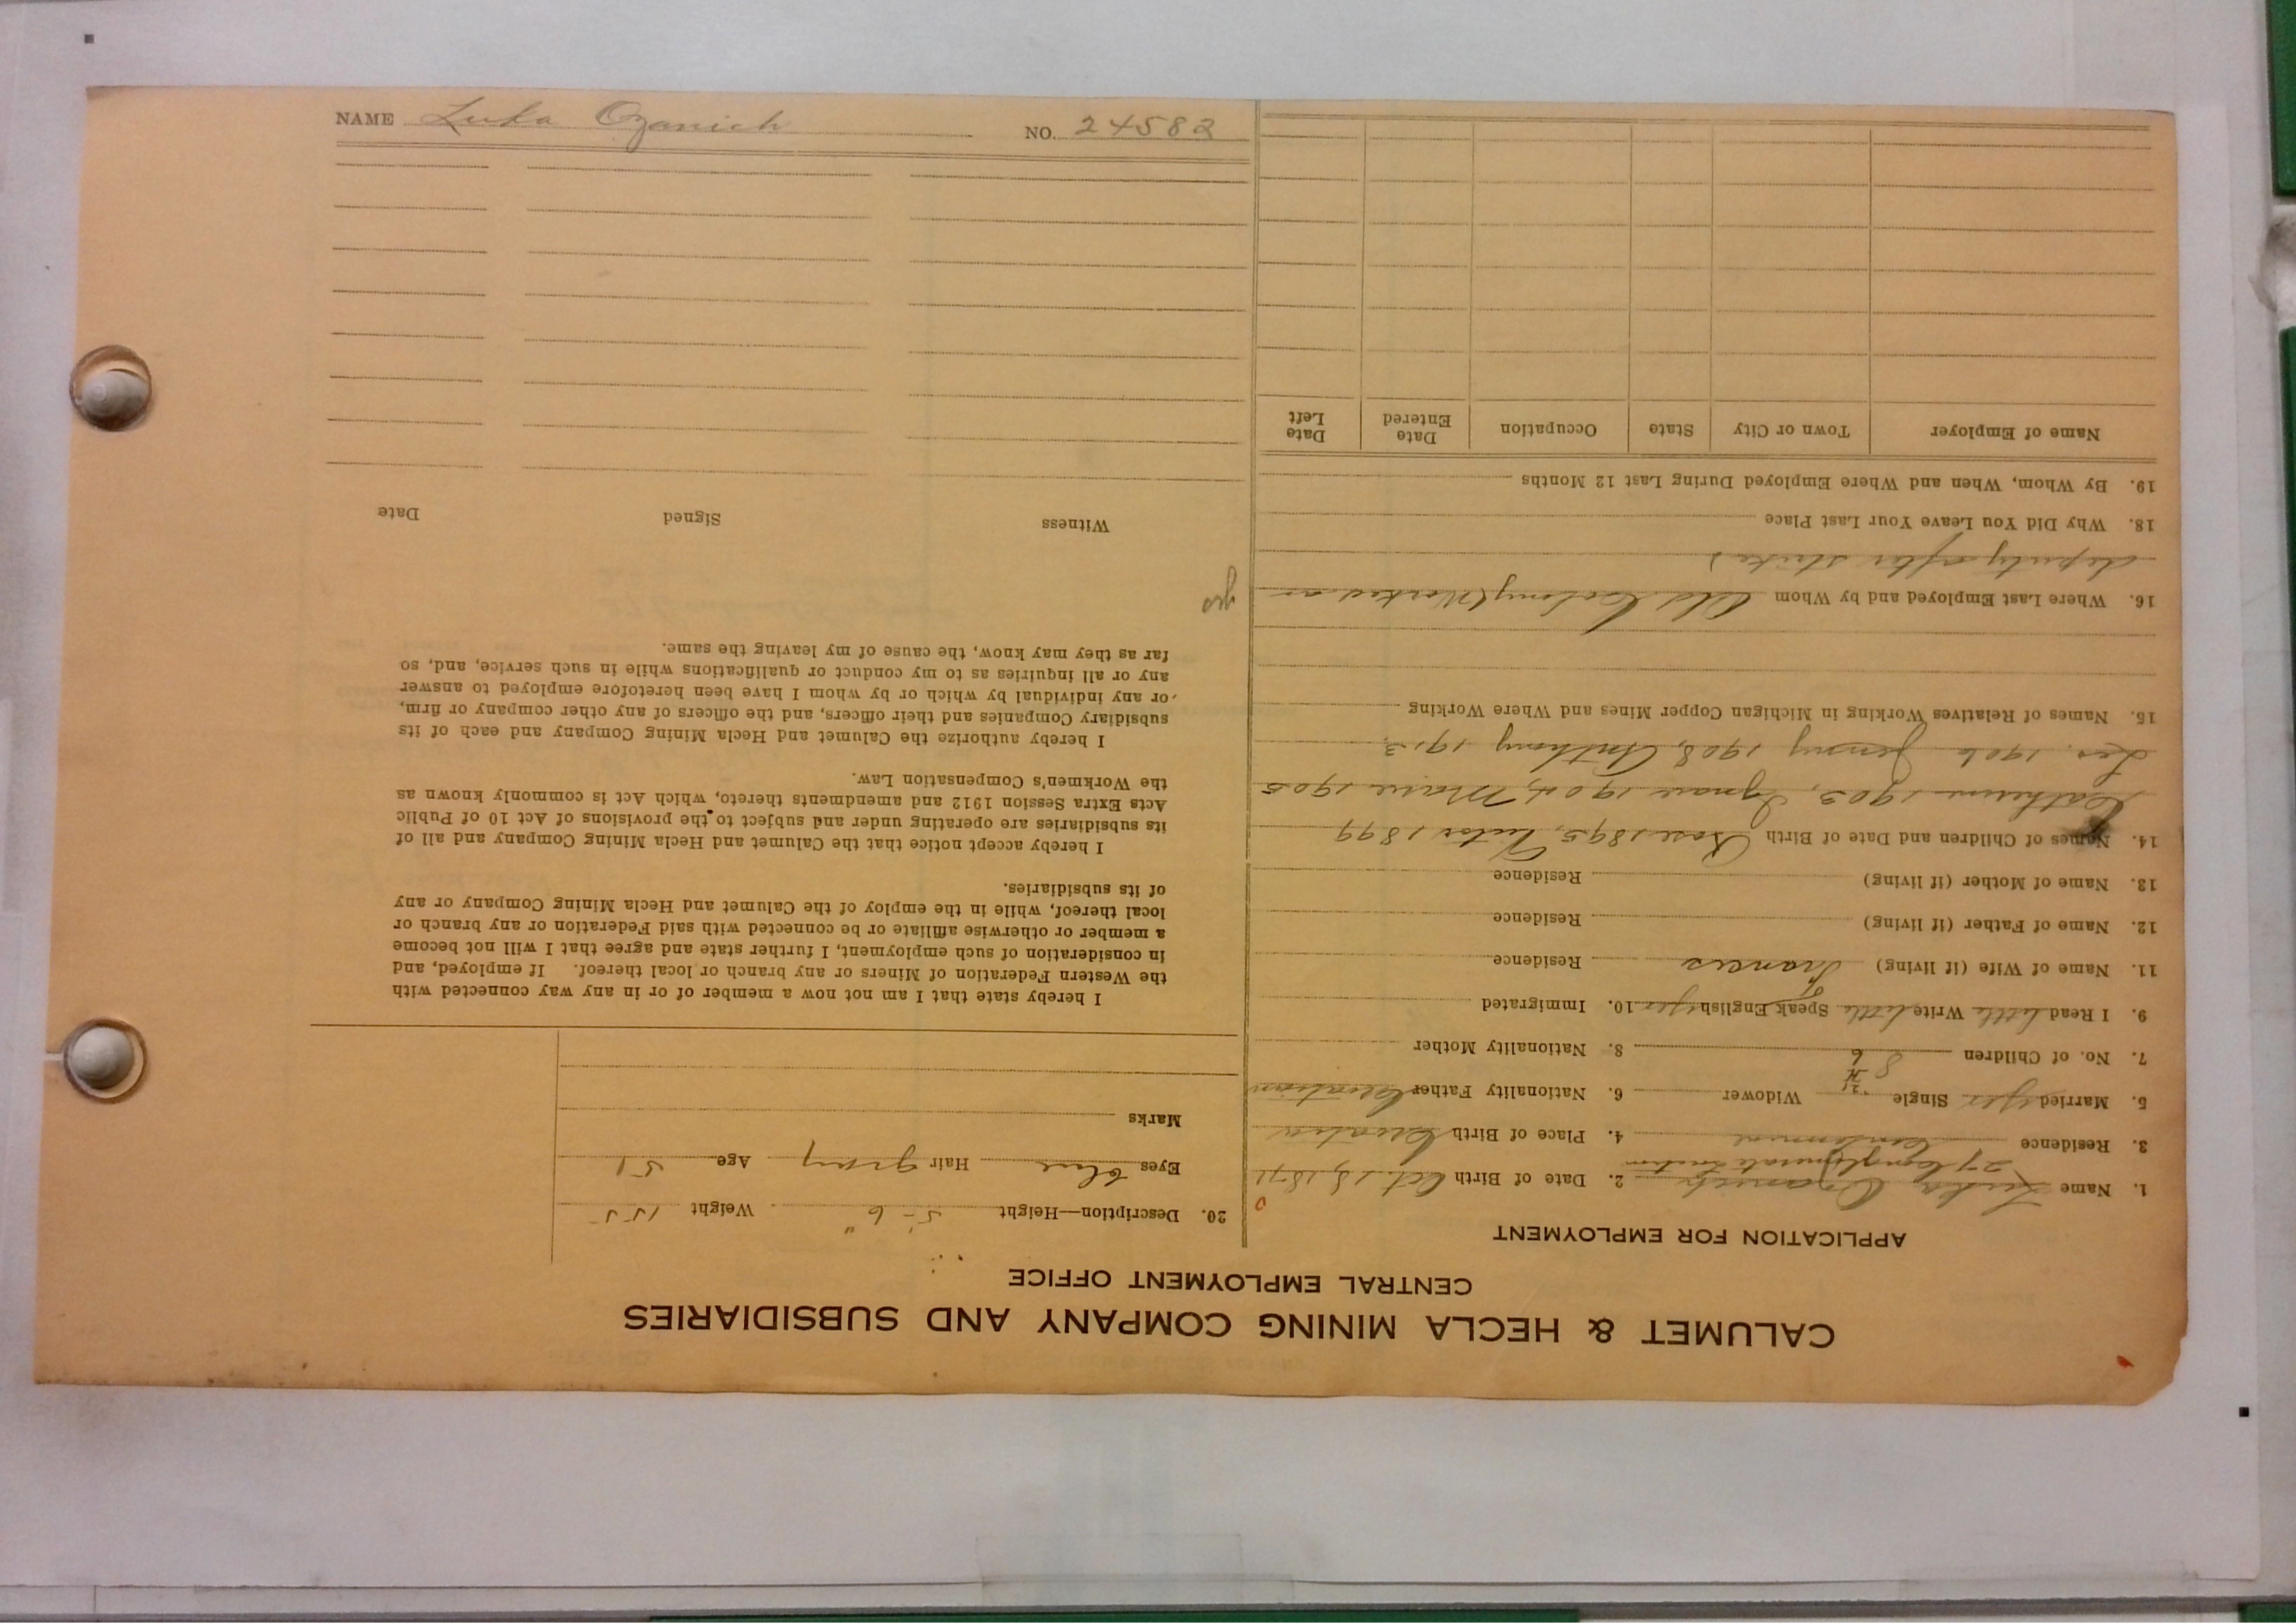 NAME Luka Ozanich NO. 24582
CALUMET & HECLA MINING COMPANY AND SUBSIDIARIES
CENTRAL EMPLOYMENT OFFICE
APPLICATION FOR EMPLOYMENT
1. Name Luka Ozanich 2. Date of Birth Oct. 18, 1871
27 Conglomerate Location
3. Residence Centennial 4. Place of Birth Croatia
5. Married yes Single Widower 6. Nationality Father Croatian
7. No. of Children 8 6 8. Nationality Mother
9. I Read little Write little Speak English yes 10. Immigrated
11. Name of Wife (if living) Frances Residence
12. Name of Father (if living) Residence
13. Name of Mother (if living) Residence
14. Names of Children and Date of Birth Rose 1895, Victor 1899
Catherine 1903, Ignace 1904, Marie 1905
Leo. 1906 Jenny 1908, Anthony 1913
15. Names of Relatives Working in Michigan Copper Mines and Where Working
16. Where Last Employed and by Whom Old Colony (Worked as
deputy after strike)
18. Why Did You Leave Your Last Place
19. By Whom, When and Where Employed During Last 12 Months
Name of Employer Town or City State Occupation Date Entered Date Left
20. Description—Height 5'-6" Weight 155
Eyes blue Hair gray Age 51
Marks
I hereby state that I am not now a member of or in any way connected with
the Western Federation of Miners or any branch or local thereof. If employed, and
in consideration of such employment, I further state and agree that I will not become
a member or otherwise affiliate or be connected with said Federation or any branch or
local thereof, while in the employ of the Calumet and Hecla Mining Company or any
of its subsidiaries.
I hereby accept notice that the Calumet and Hecla Mining Company and all of
its subsidiaries are operating under and subject to the provisions of Act 10 of Public
Acts Extra Session 1912 and amendments thereto, which Act is commonly known as
the Workmen's Compensation Law.
I hereby authorize the Calumet and Hecla Mining Company and each of its
subsidiary Companies and their officers, and the officers of any other company or firm,
or any individual by which or by whom I have been heretofore employed to answer
any or all inquiries as to my conduct or qualifications while in such service, and, so
far as they may know, the cause of my leaving the same.
Witness Signed Date